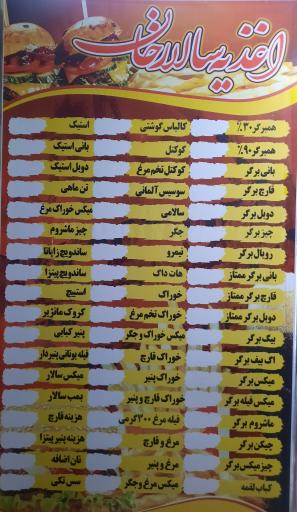 اغذیه سالارخان
همبرگر ۳۰٪
همبرگر ۹۰٪
بانی برگر
قارچ برگر
دوبل برگر
چیز برگر
رویال برگر
بانی برگر ممتاز
قارچ برگر ممتاز
دوبل برگر ممتاز
بیگ برگر
اگ بیف برگر
میکس برگر
میکس فیله برگر
ماشروم برگر
چیکن برگر
چیزمیکس برگر
کباب لقمه
کالباس گوشتی
کوکتل
کوکتل تخم مرغ
سوسیس آلمانی
سالامی
جگر
نیمرو
هات داگ
خوراک
خوراک تخم مرغ
میکس خوراک و جگر
خوراک قارچ
خوراک پنیر
خوراک قارچ و پنیر
فیله مرغ ۳۰۰گرمی
مرغ و قارچ
مرغ و پنیر
میکس مرغ و جگر
استیک
بانی استیک
دوبل استیک
تن ماهی
میکس خوراک مرغ
چیز ماشروم
ساندویچ زاپاتا
ساندویچ پیتزا
اسنیچ
کروک مانژیر
پنیر کبابی
فیله یونانی پنیردار
میکس سالار
بمب سالار
هزینه قارچ
هزینه پنیر پیتزا
نان اضافه
سس تکی